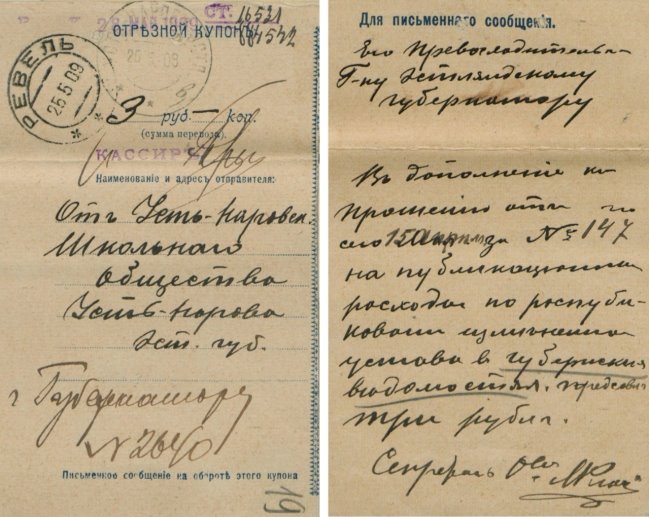 28 МАЙ 1909
СТ. 16521
684542
ОТРѢЗНОЙ КУПОНЪ
РЕВЕЛЬ
25 5 09
25 5 09
3 руб — коп.
(сумма перевода).
КАССИРЪ
Наименованіе и адресъ отправителя:
Отъ Усть-Наровск.
Школьнаго
Общества
Усть-Нарова
Эст. губ.
Губернатору
N 2640
Письменное сообщеніе на оборотѣ этого купона
19
Для письменнаго сообщенія.
Его Превосходительство
Г-ну Эстляндскому
губернатору
Въ дополненіе къ
прошенію отъ
сего 15 Апрѣля за № 147
на публикаціонные
расходы по распубли-
кованію измѣненія
устава въ губернскихъ
вѣдомостяхъ,
три рубля.
Секретарь